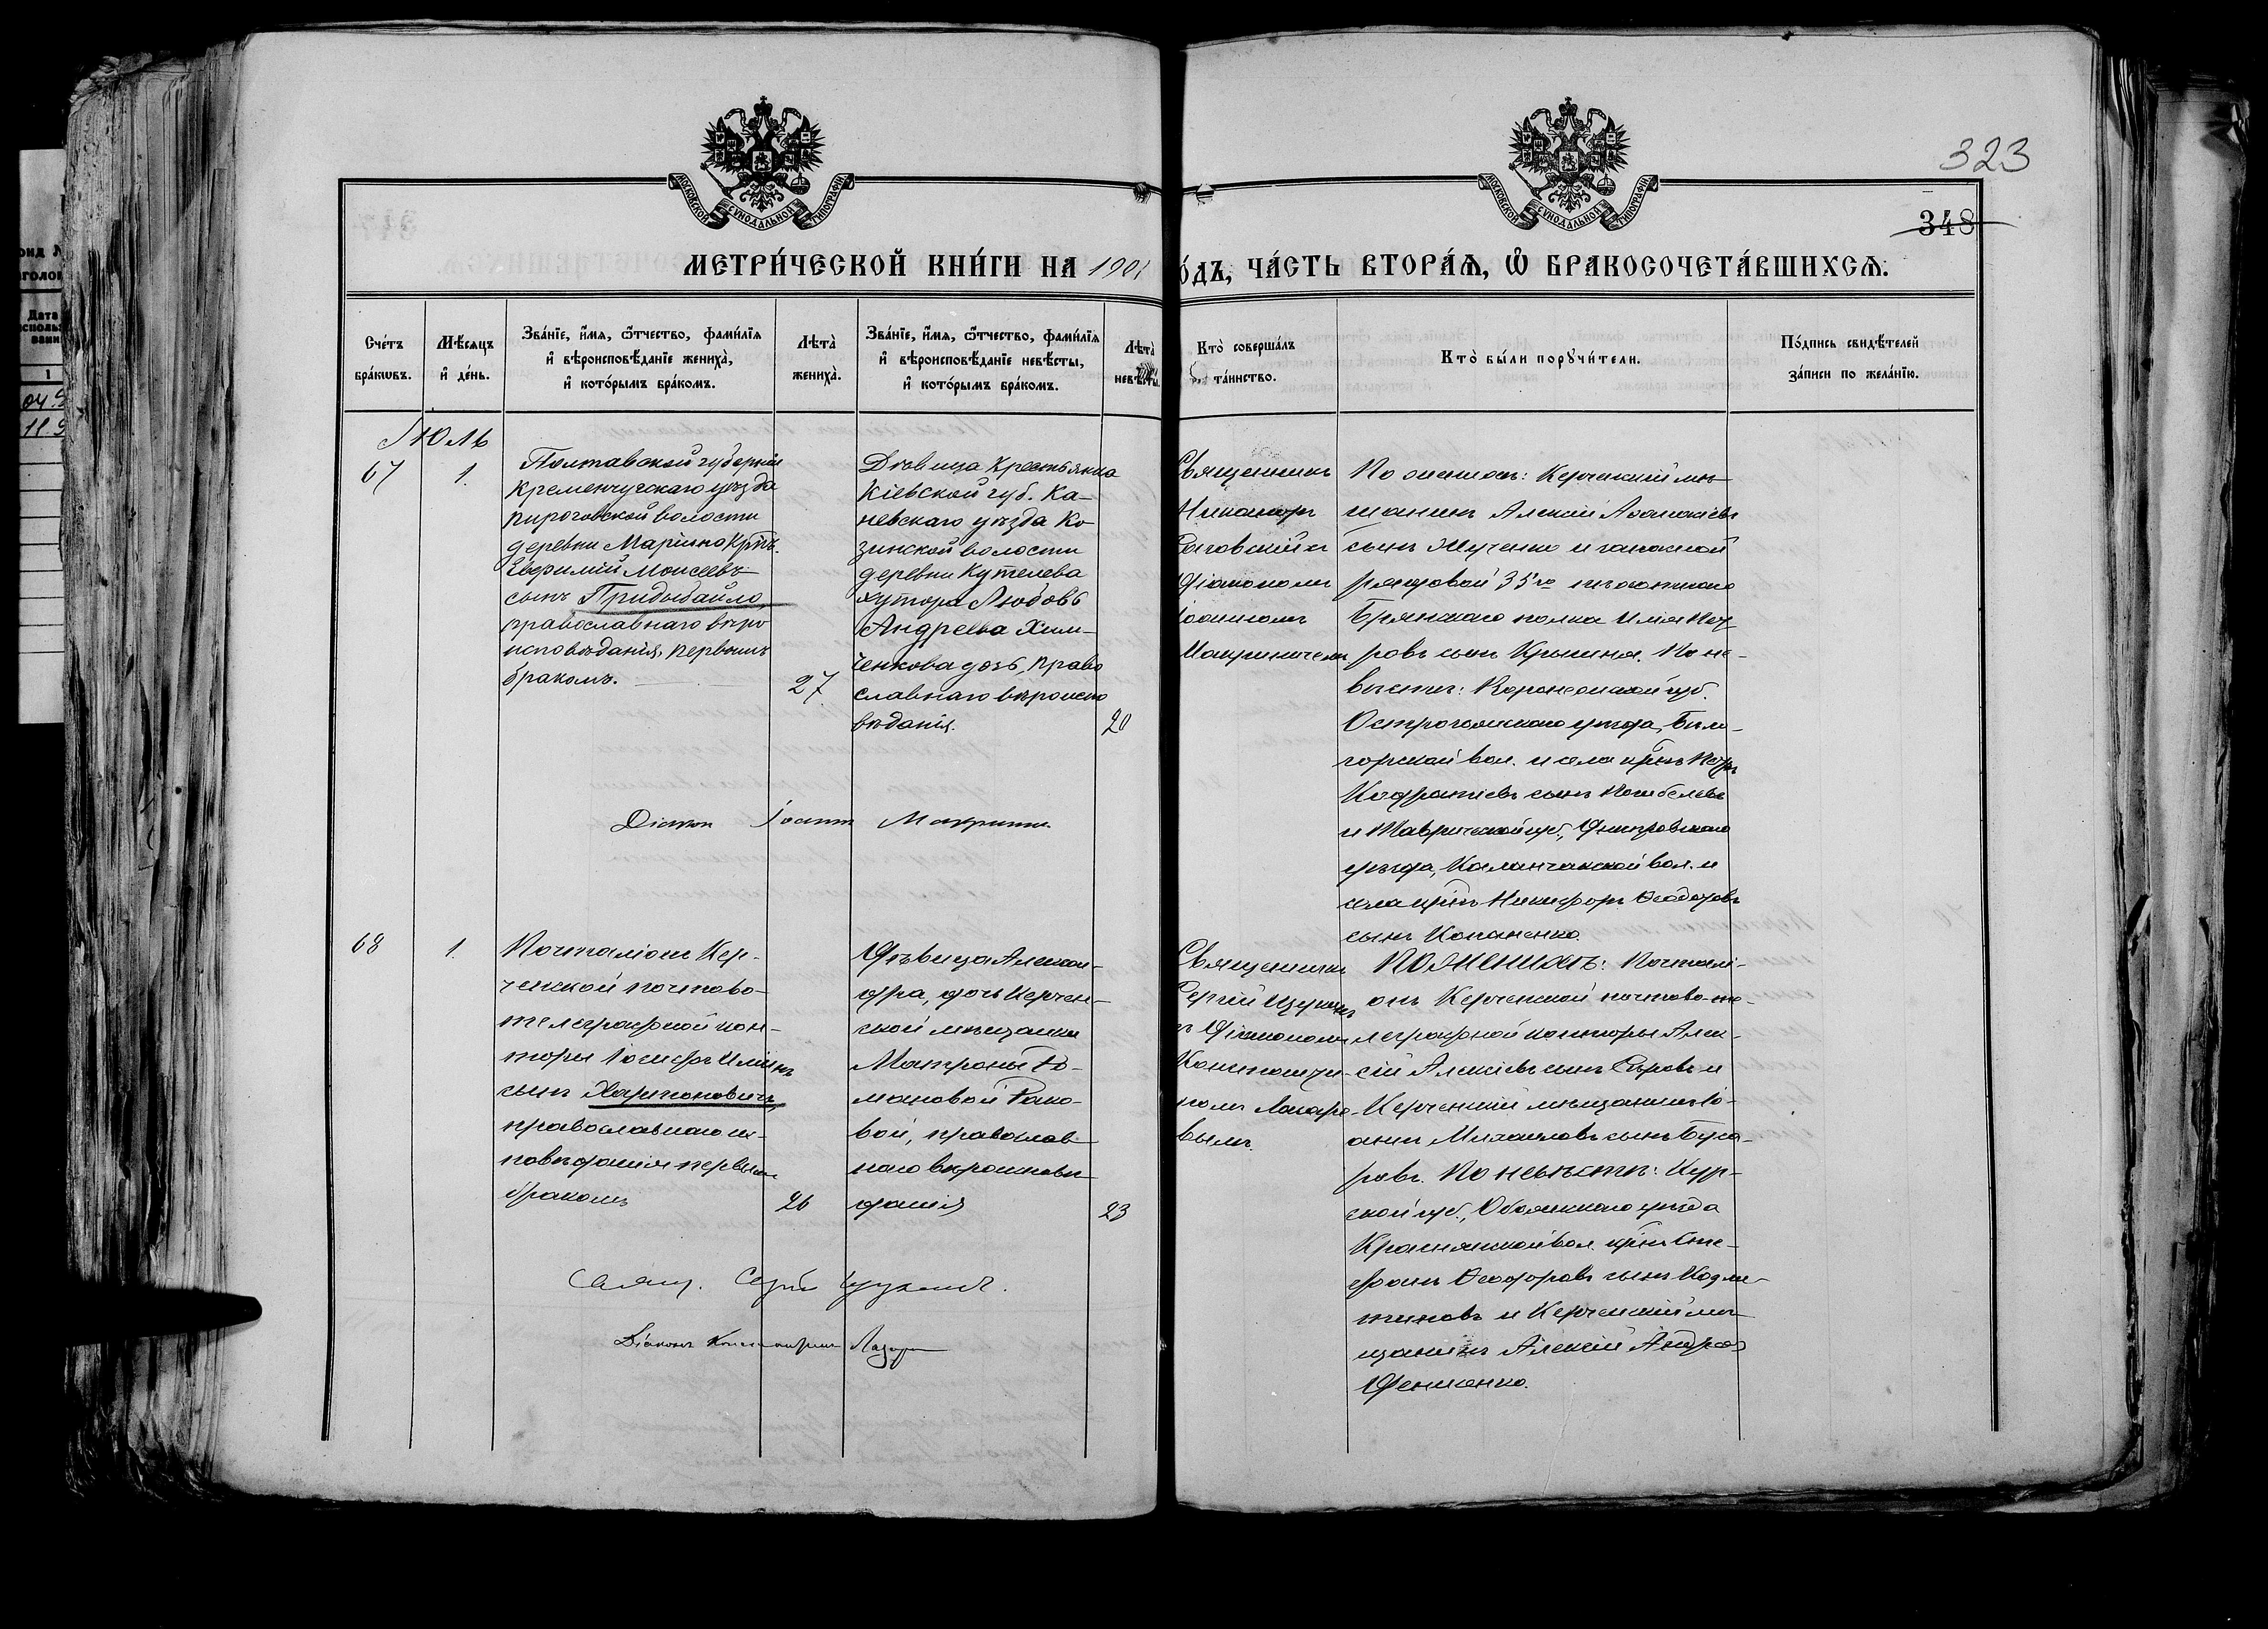 323
348
МОСКОВСКОЙ СѴНОДАЛЬНОЙ ТИПОГРАФИИ
МОСКОВСКОЙ СѴНОДАЛЬНОЙ ТИПОГРАФИИ
МЕТРИ́ЧЕСКОЙ КНИ́ГИ НА 1901
О́ДЪ, ЧА́СТЬ ВТОРА́Ѧ, Ѡ҆ БРАКОСОЧЕТА́ВШИХСѦ.
Сче́тъ
бра́кѡвъ.
Мѣ́сяцъ
и҆ де́нь.
Зва́нїе, и҆́мѧ, ѻ҆́тчество, фами́лїѧ
и҆ вѣроисповѣ́данїе жениха̀,
и҆ кото́рымъ бра́комъ.
Лѣта̀
жениха̀.
Зва́нїе, и҆́мѧ, ѻ҆́тчество, фами́лїѧ
и҆ вѣроисповѣ́данїе невѣ́сты,
и҆ кото́рымъ бра́комъ.
Лѣта̀
невѣ́сты.
Кто̀ соверша́лъ
та́инство.
Кто̀ бы́ли порꙋчи́тели.
По́дпись свидѣ́телей
за́писи по жела́нїю.
Іюль
67
1.
Полтавской губерніи
Кременчугскаго уѣзда
Пироговской волости
деревни Марьино крѣн.
Евфимій Моисеевъ
сынъ Придыбайло,
православнаго вѣро
исповѣданія, первымъ
бракомъ.
27
Дѣвица Крестьянка
Кіевской губ. Ка-
невскаго уѣзда Ко
зинской волости
деревни Кутелева
хутора Любовь
Андреева Хим-
ченкова дочь, право
славнаго вѣроиспо
вѣданія.
20
Священникъ
Никаноръ
съ
діакономъ
Іоанномъ
По женихѣ: Керченскій мѣ-
щанинъ Алексій Аѳанасіевъ
сынъ Жученко и запасной
рядовой 35го пѣхотнаго
Брянскаго полка Илія Пет
ровъ сынъ Крынинъ. По не-
вѣстѣ: Воронежской губ.
Острогожскаго уѣзда, Бѣло-
горской вол. и села крн. Петръ
Кодратіевъ сынъ Кошбелевъ
и Таврической губ., Днѣпровскаго
уѣзда, Каланчакской вол. и
села крн. Никифоръ Ѳеодоровъ
сынъ Копаненко.
Діаконъ Іоаннъ
68
1.
Почталіонъ Кер-
ченской почтово-
телеграфной кон-
торы Іосифъ Иліинъ
сынъ Харитоновичъ
православнаго ис-
повѣданія первымъ
бракомъ
26
Дѣвица Алексан-
дра, дочь Керчен-
ской мѣщанки
Матроны Ро-
мановой Рако-
вой, православ-
наго вѣроисповѣ
данія
23
Священникъ
Сергій
съ Діакономъ
Константи-
номъ Лазаре-
вымъ.
По женихѣ: Почталі-
онъ Керченской почтово-те-
леграфной конторы Алек-
сій Алексіевъ сынъ Сѣровъ и
Керченскій мѣщанинъ Іо-
аннъ Михаиловъ сынъ Буха-
ровъ. По невѣстѣ: Кур-
ской губ., Обоянскаго уѣзда
Краснянской вол. крн. Сте-
фанъ Ѳеодоровъ сынъ Кодли-
тиновъ и Керченскій мѣ-
щанинъ Алексій Андреевъ
Демченко.
Свящ. Сергій
Діаконъ Константинъ Лазарев